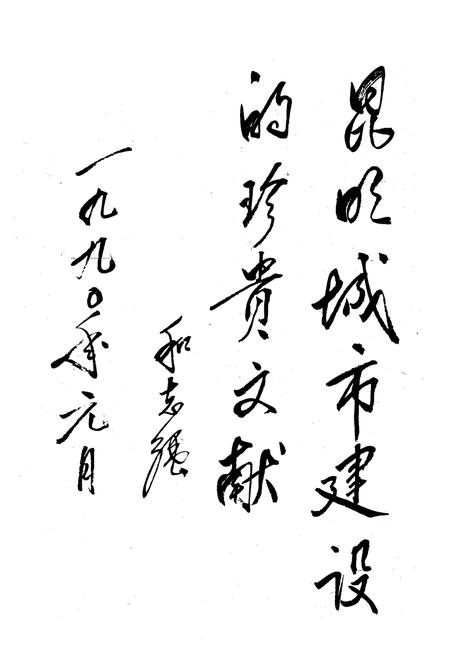 昆明城市建设
的珍貴文献
和志强
一九九〇年元月